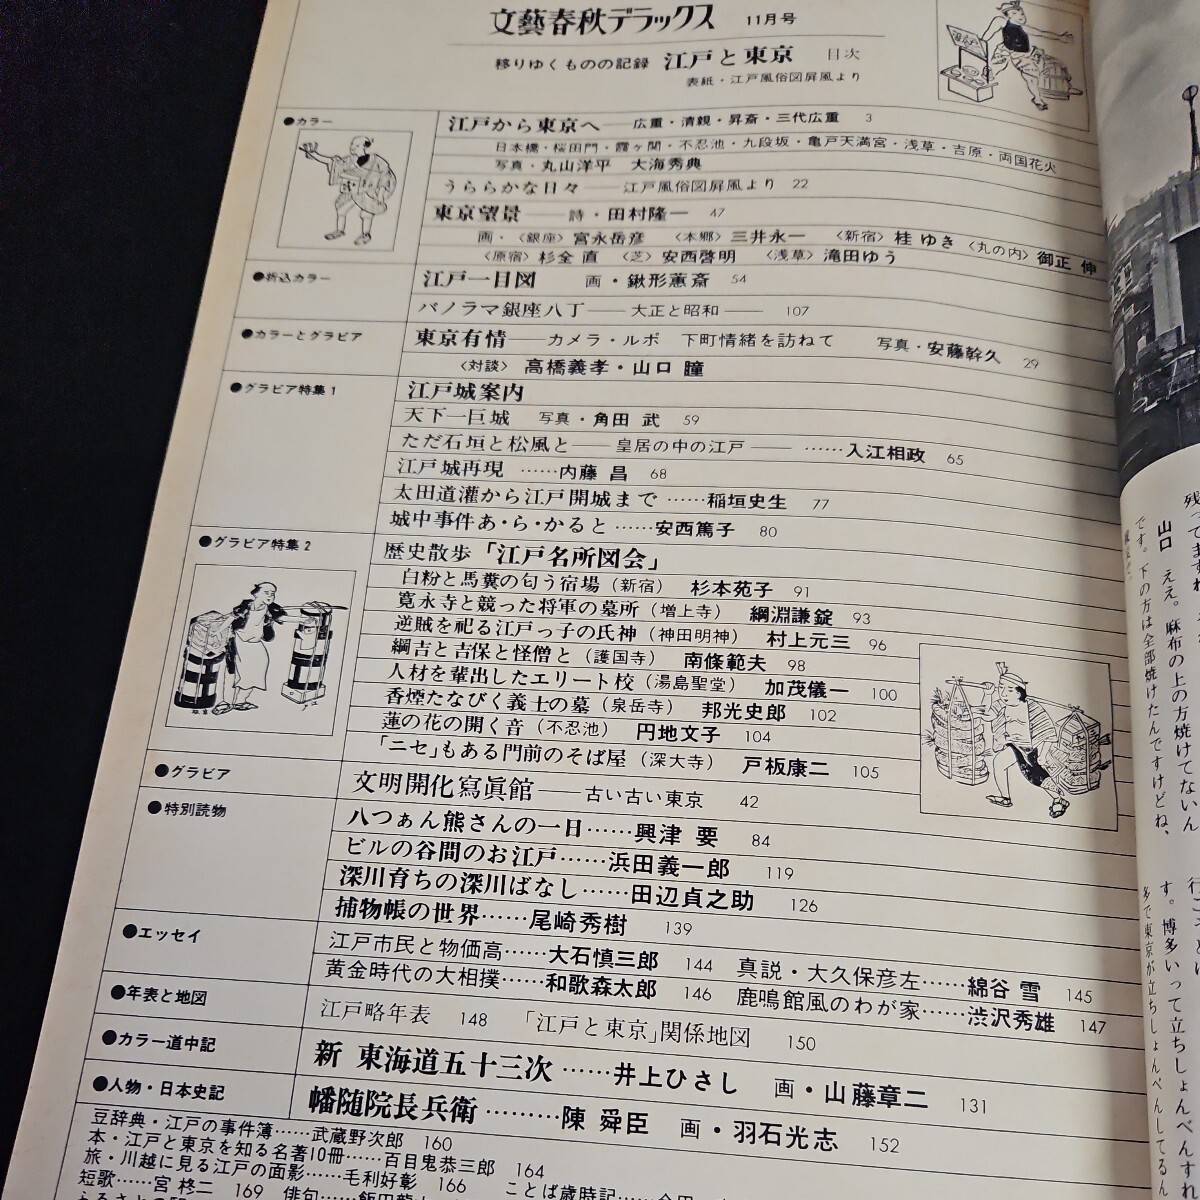 文藝春秋デラックス 11月号
移りゆくものの記録 江戸と東京 目次
表紙・江戸風俗図屏風より
●カラー
江戸から東京へ──広重・清親・昇斎・三代広重 3
日本橋・桜田門・霞ヶ関・不忍池・九段坂・亀戸天満宮・浅草・吉原・両国花火
写真・丸山洋平 大海秀典
うららかな日々──江戸風俗図屏風より 22
東京望景──詩・田村隆一 47
画・〈銀座〉宮永岳彦 〈本郷〉三井永一 〈新宿〉桂ゆき 〈丸の内〉御正 伸
〈原宿〉杉全 直 〈芝〉安西啓明 〈浅草〉滝田ゆう
●折込カラー
江戸一目図 画・鍬形蕙斎 54
パノラマ銀座八丁──大正と昭和── 107
●カラーとグラビア
東京有情──カメラ・ルポ 下町情緒を訪ねて 写真・安藤幹久 29
〈対談〉高橋義孝・山口 瞳
●グラビア特集1
江戸城案内
天下一巨城 写真・角田 武 59
ただ石垣と松風と──皇居の中の江戸──……入江相政 65
江戸城再現……内藤 昌 68
太田道灌から江戸開城まで……稲垣史生 77
城中事件あ・ら・かると……安西篤子 80
●グラビア特集2
歴史散歩「江戸名所図会」
白粉と馬糞の匂う宿場(新宿) 杉本苑子 91
寛永寺と競った将軍の墓所(増上寺) 綱淵謙錠 93
逆賊を祀る江戸っ子の氏神(神田明神) 村上元三 96
綱吉と吉保と怪僧と(護国寺) 南條範夫 98
人材を輩出したエリート校(湯島聖堂) 加茂儀一 100
香煙たなびく義士の墓(泉岳寺) 邦光史郎 102
蓮の花の開く音(不忍池) 円地文子 104
「ニセ」もある門前のそば屋(深大寺) 戸板康二 105
●グラビア
文明開化寫眞館──古い古い東京 42
●特別読物
八つぁん熊さんの一日……興津 要 84
ビルの谷間のお江戸……浜田義一郎 119
深川育ちの深川ばなし……田辺貞之助 126
捕物帳の世界……尾崎秀樹 139
●エッセイ
江戸市民と物価高……大石慎三郎 144 真説・大久保彦左……綿谷 雪 145
黄金時代の大相撲……和歌森太郎 146 鹿鳴館風のわが家……渋沢秀雄 147
●年表と地図
江戸略年表 148 「江戸と東京」関係地図 150
●カラー道中記
新 東海道五十三次……井上ひさし 画・山藤章二 131
●人物・日本史記
幡随院長兵衛………陳 舜臣 画・羽石光志 152
豆辞典・江戸の事件簿……武蔵野次郎 160
本・江戸と東京を知る名著10冊……百目鬼恭三郎 164
旅・川越に見る江戸の面影……毛利好彰 166 ことば歳時記……金田
短歌……宮 柊二 169 俳句……飯田龍
山口 ええ。麻布の上の方焼けてないん
です。下の方は全部焼けたんですけどね、
す。博多いって立ちしょんべんすれ
多で東京が立ちしょんべんしてるん